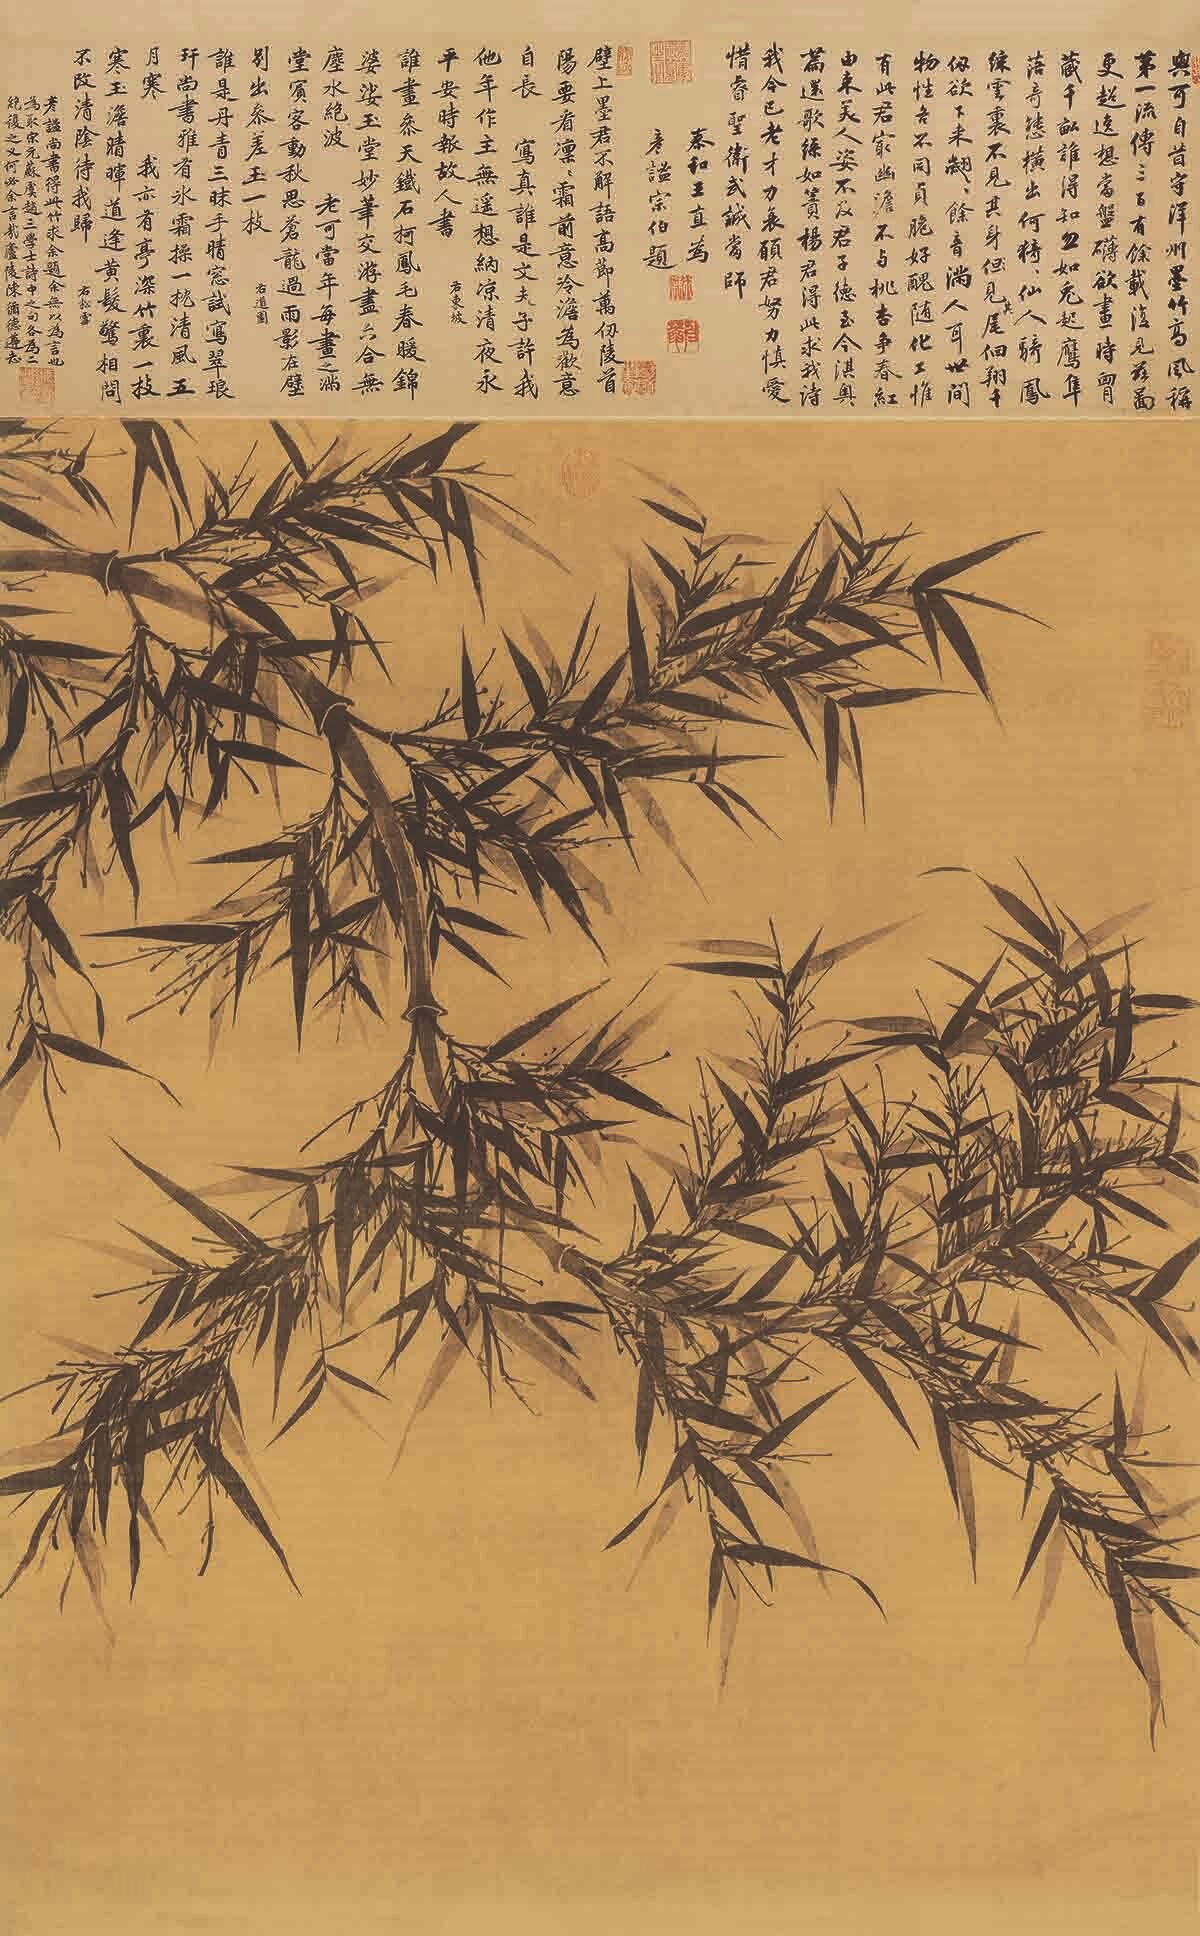 與可自昔守洋州墨竹高風稱
第一流傳三百有餘載後見茲圖
更超逸想當盤礴欲畫時胷
藏千畝誰得知忽如兎起鷹隼
落奇態橫出何猗猗仙人騎鳳
繞雲裏不見其身但見其尾回翔千
仭欲下来翽翽餘音滿人耳世間
物性各不同貞脆好醜随化工惟
有此君㝡幽澹不与桃杏争春紅
由来美人姿不及君子德至今淇奥
篇還歌綠如簀楊君得此求我詩
我今已老才力衰願君努力慎愛
惜睿聖衛武誠當師
泰和王直為
彦謐宗伯題
壁上墨君不解語高節萬仞陵首
陽要看凜凜霜前意冷澹為歡意
自長 寫真誰是文夫子許我
他年作主無遥想納凉清夜永
平安時報故人書
右東坡
誰畫叅天鐵石柯鳳毛春暖錦
娑娑玉堂妙筆交游盡六合無
塵水絶波 老可當年每畫之滿
堂賓客動秋思蒼龍過雨影在壁
别出叅差玉一枝
右道園
誰是丹青三昧手晴窓試寫翠琅
玕尚書雅有氷霜操一挹清風五
月寒 我亦有亭深竹裏一枝
寒玉澹晴暉道逢黄髮驚相問
不改清陰待我歸
右松雪
老謐尚書得此竹求余題余無以為言也
為取宋元蘇虞趙三學士詩中之句各為二
絶復之又何必余言哉廬陵陳爾德遵志